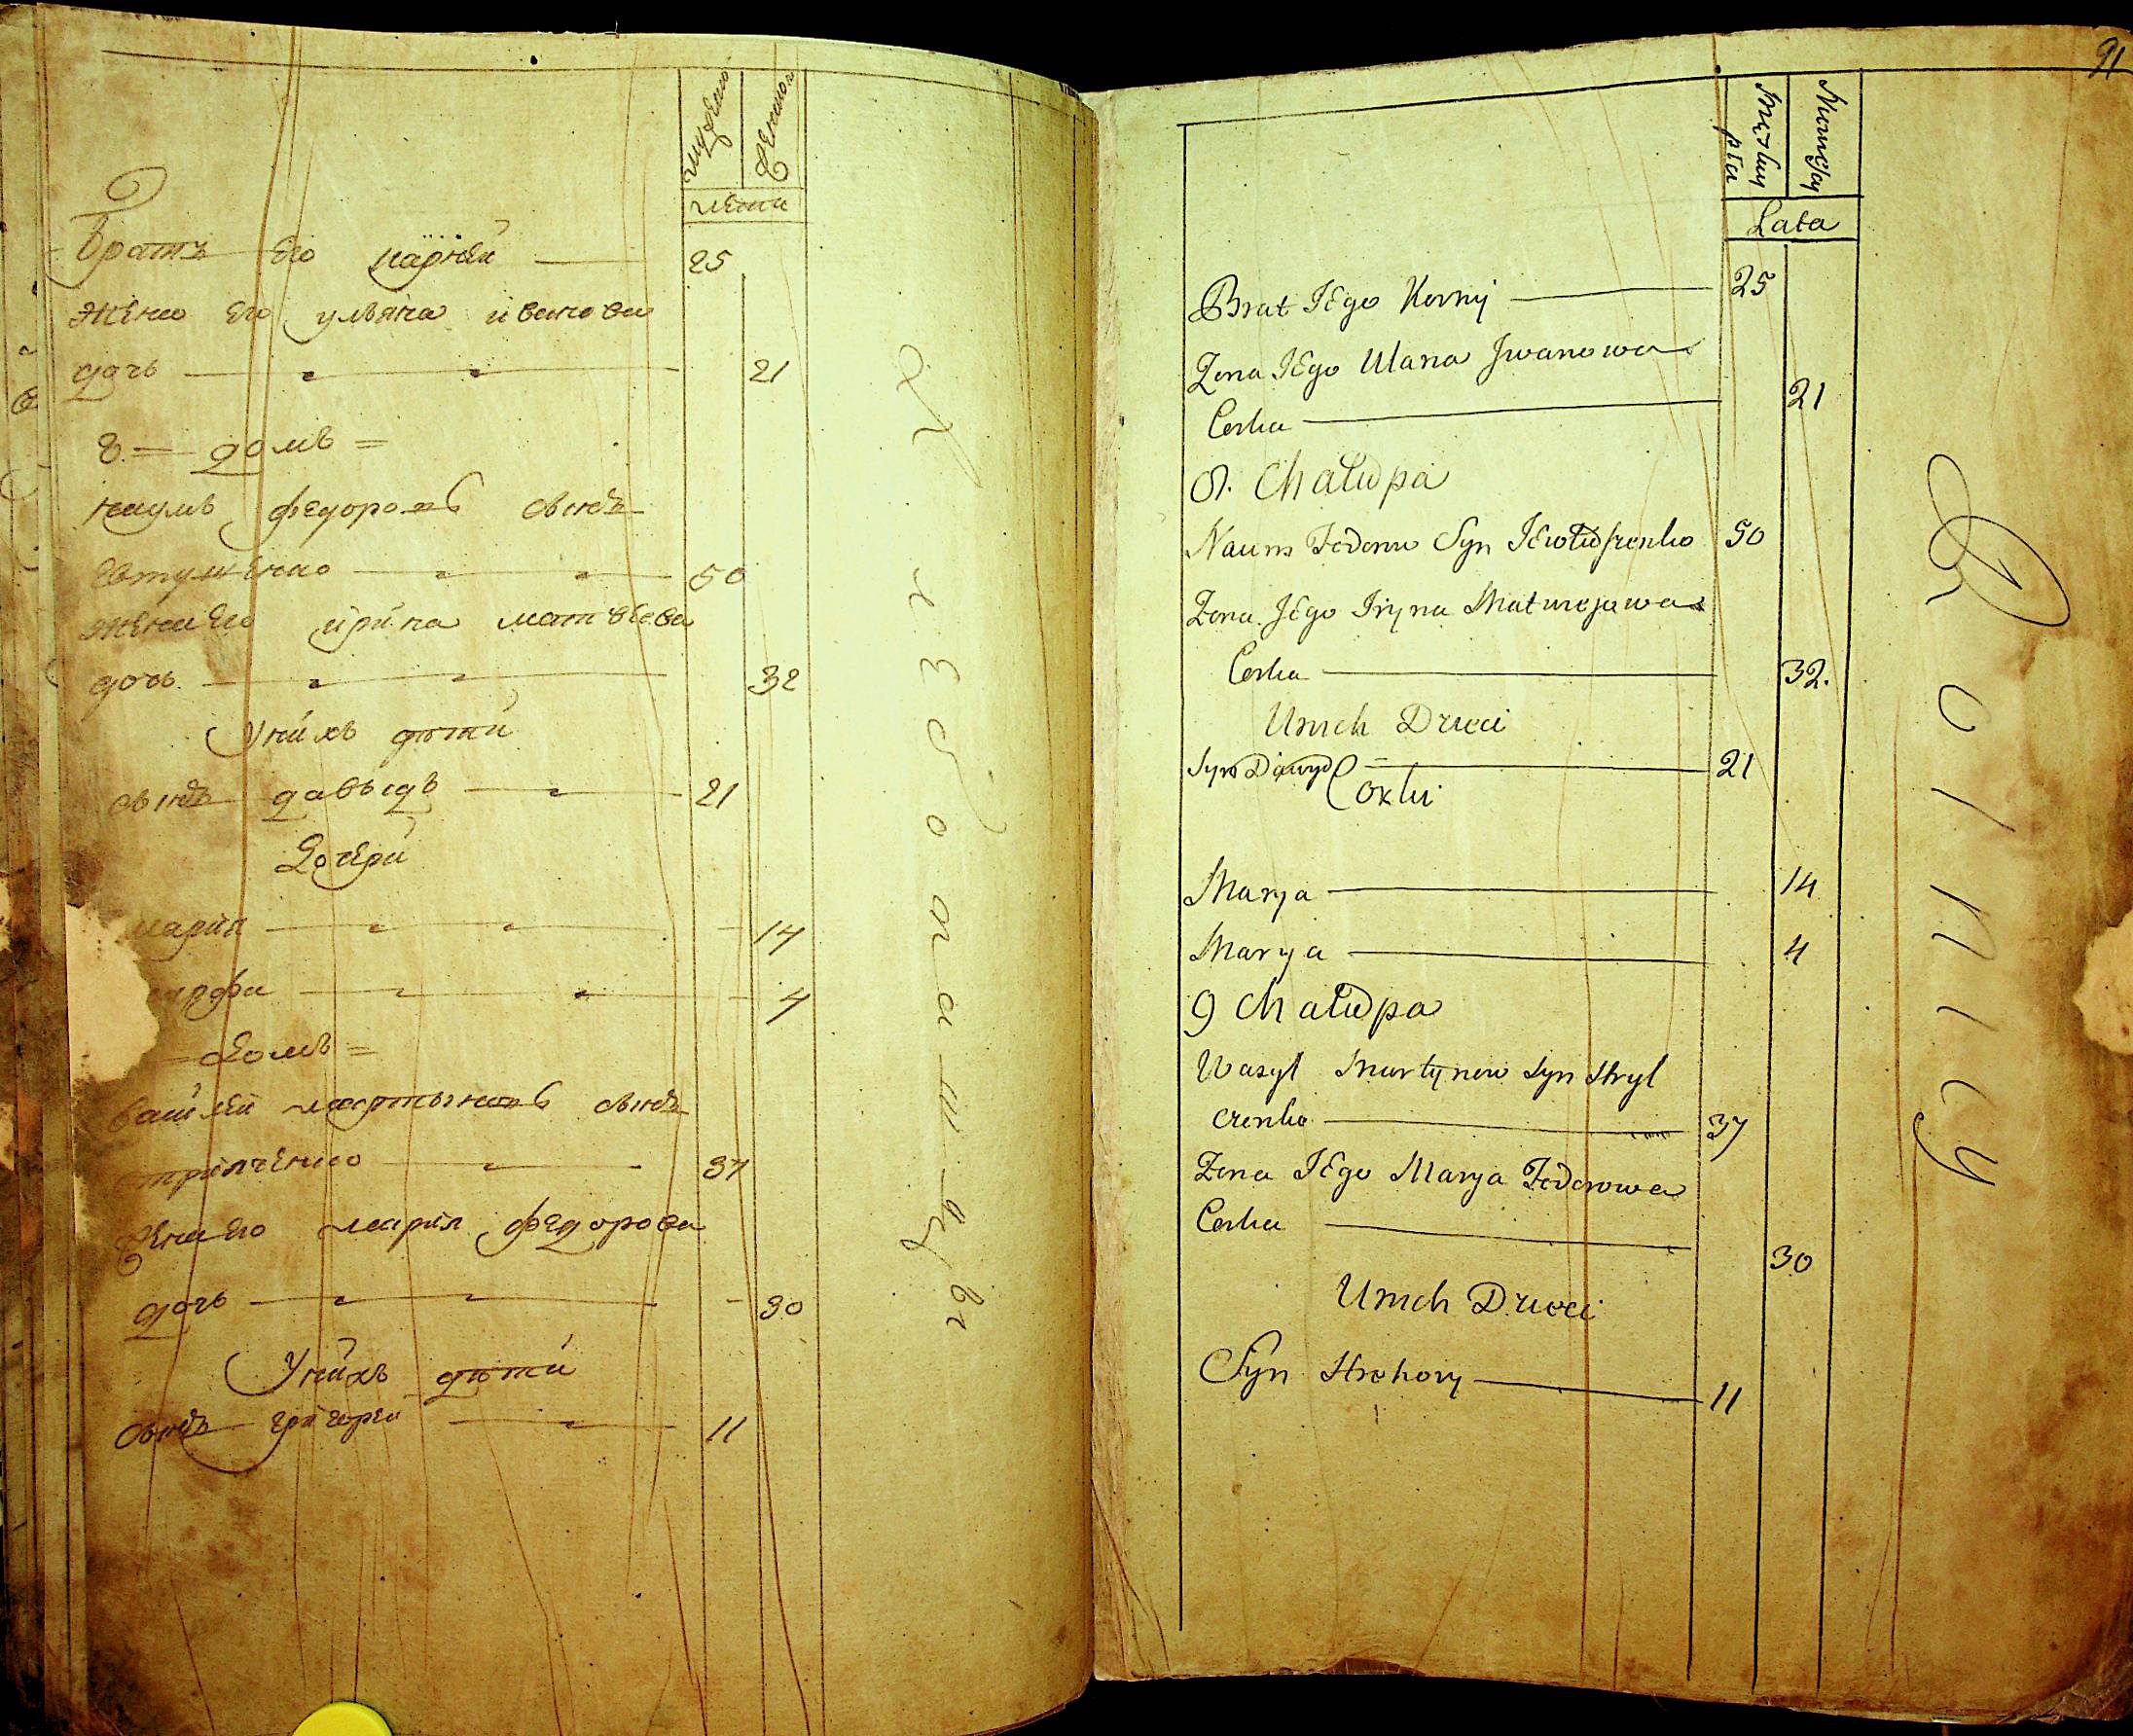 мужеско
женска
лета
Братъ его карней 25
жена его ульяна иванова
дочь 21
8. домъ
наумъ федоровъ сынъ
Евтушенко 50
жена его ирина матвеева
дочь 32
У нихъ дети
сынъ давыдъ 21
Дочери
мария 14
марфа 4
домъ
василей мартыновъ сынъ
стрилченко 37
жена его мария федорова
дочь 30
У нихъ дети
сынъ григорей 11
91
Męzkiy
płci
Lata
Brat IEgo Korniy 25
Zona IEgo Ulana Jwanowa
Corka 21
8. Chałupa
Naum Fedorow Syn IEwtuszenko 50
Zona JEgo Iryna Matwiejowa
Corka 32.
U nich Dzieci
Syn Dawyd 21
Corki
Marya 14
Marya 4
9 Chałupa
Wasyl Martynow Syn Stryl
czenko 37
Zona IEgo Marya Fedorowa
Corka 30
U nich Dzieci
Syn Hrehory 11
Rolnicy